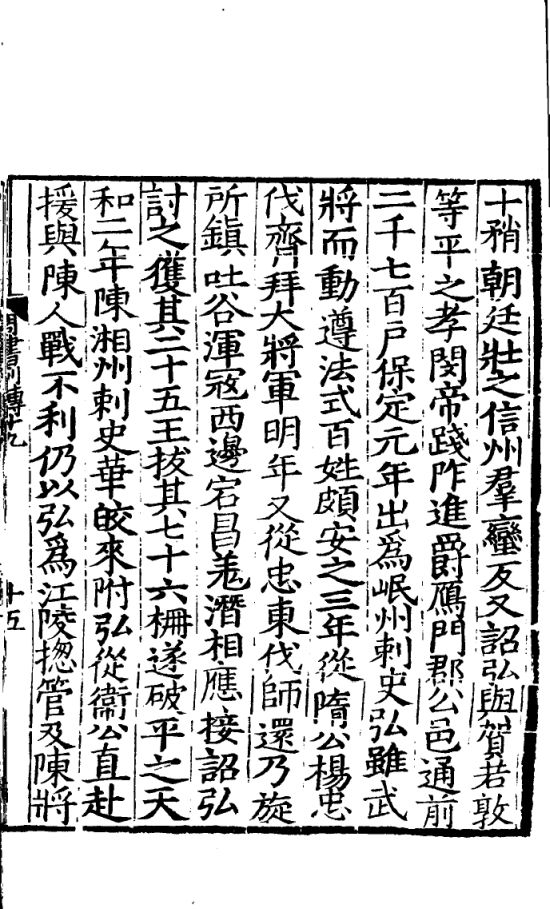 十矟朝廷壯之信州羣蠻反又詔弘與賀若敦
等平之孝閔帝踐阼進爵鴈門郡公邑通前
二千七百戶保定元年出爲岷州刺史弘雖武
將而動遵法式百姓頗安之三年從隋公楊忠
伐齊拜大將軍明年又從忠東伐師還乃旋
所鎮吐谷渾冦西邊宕昌羌潛相應接詔弘
討之獲其二十五王拔其七十六柵遂破平之天
和二年陳湘州刺史華皎來附弘從衞公直赴
援與陳人戰不利仍以弘爲江陵揔管及陳將
周書列傳十九
十五